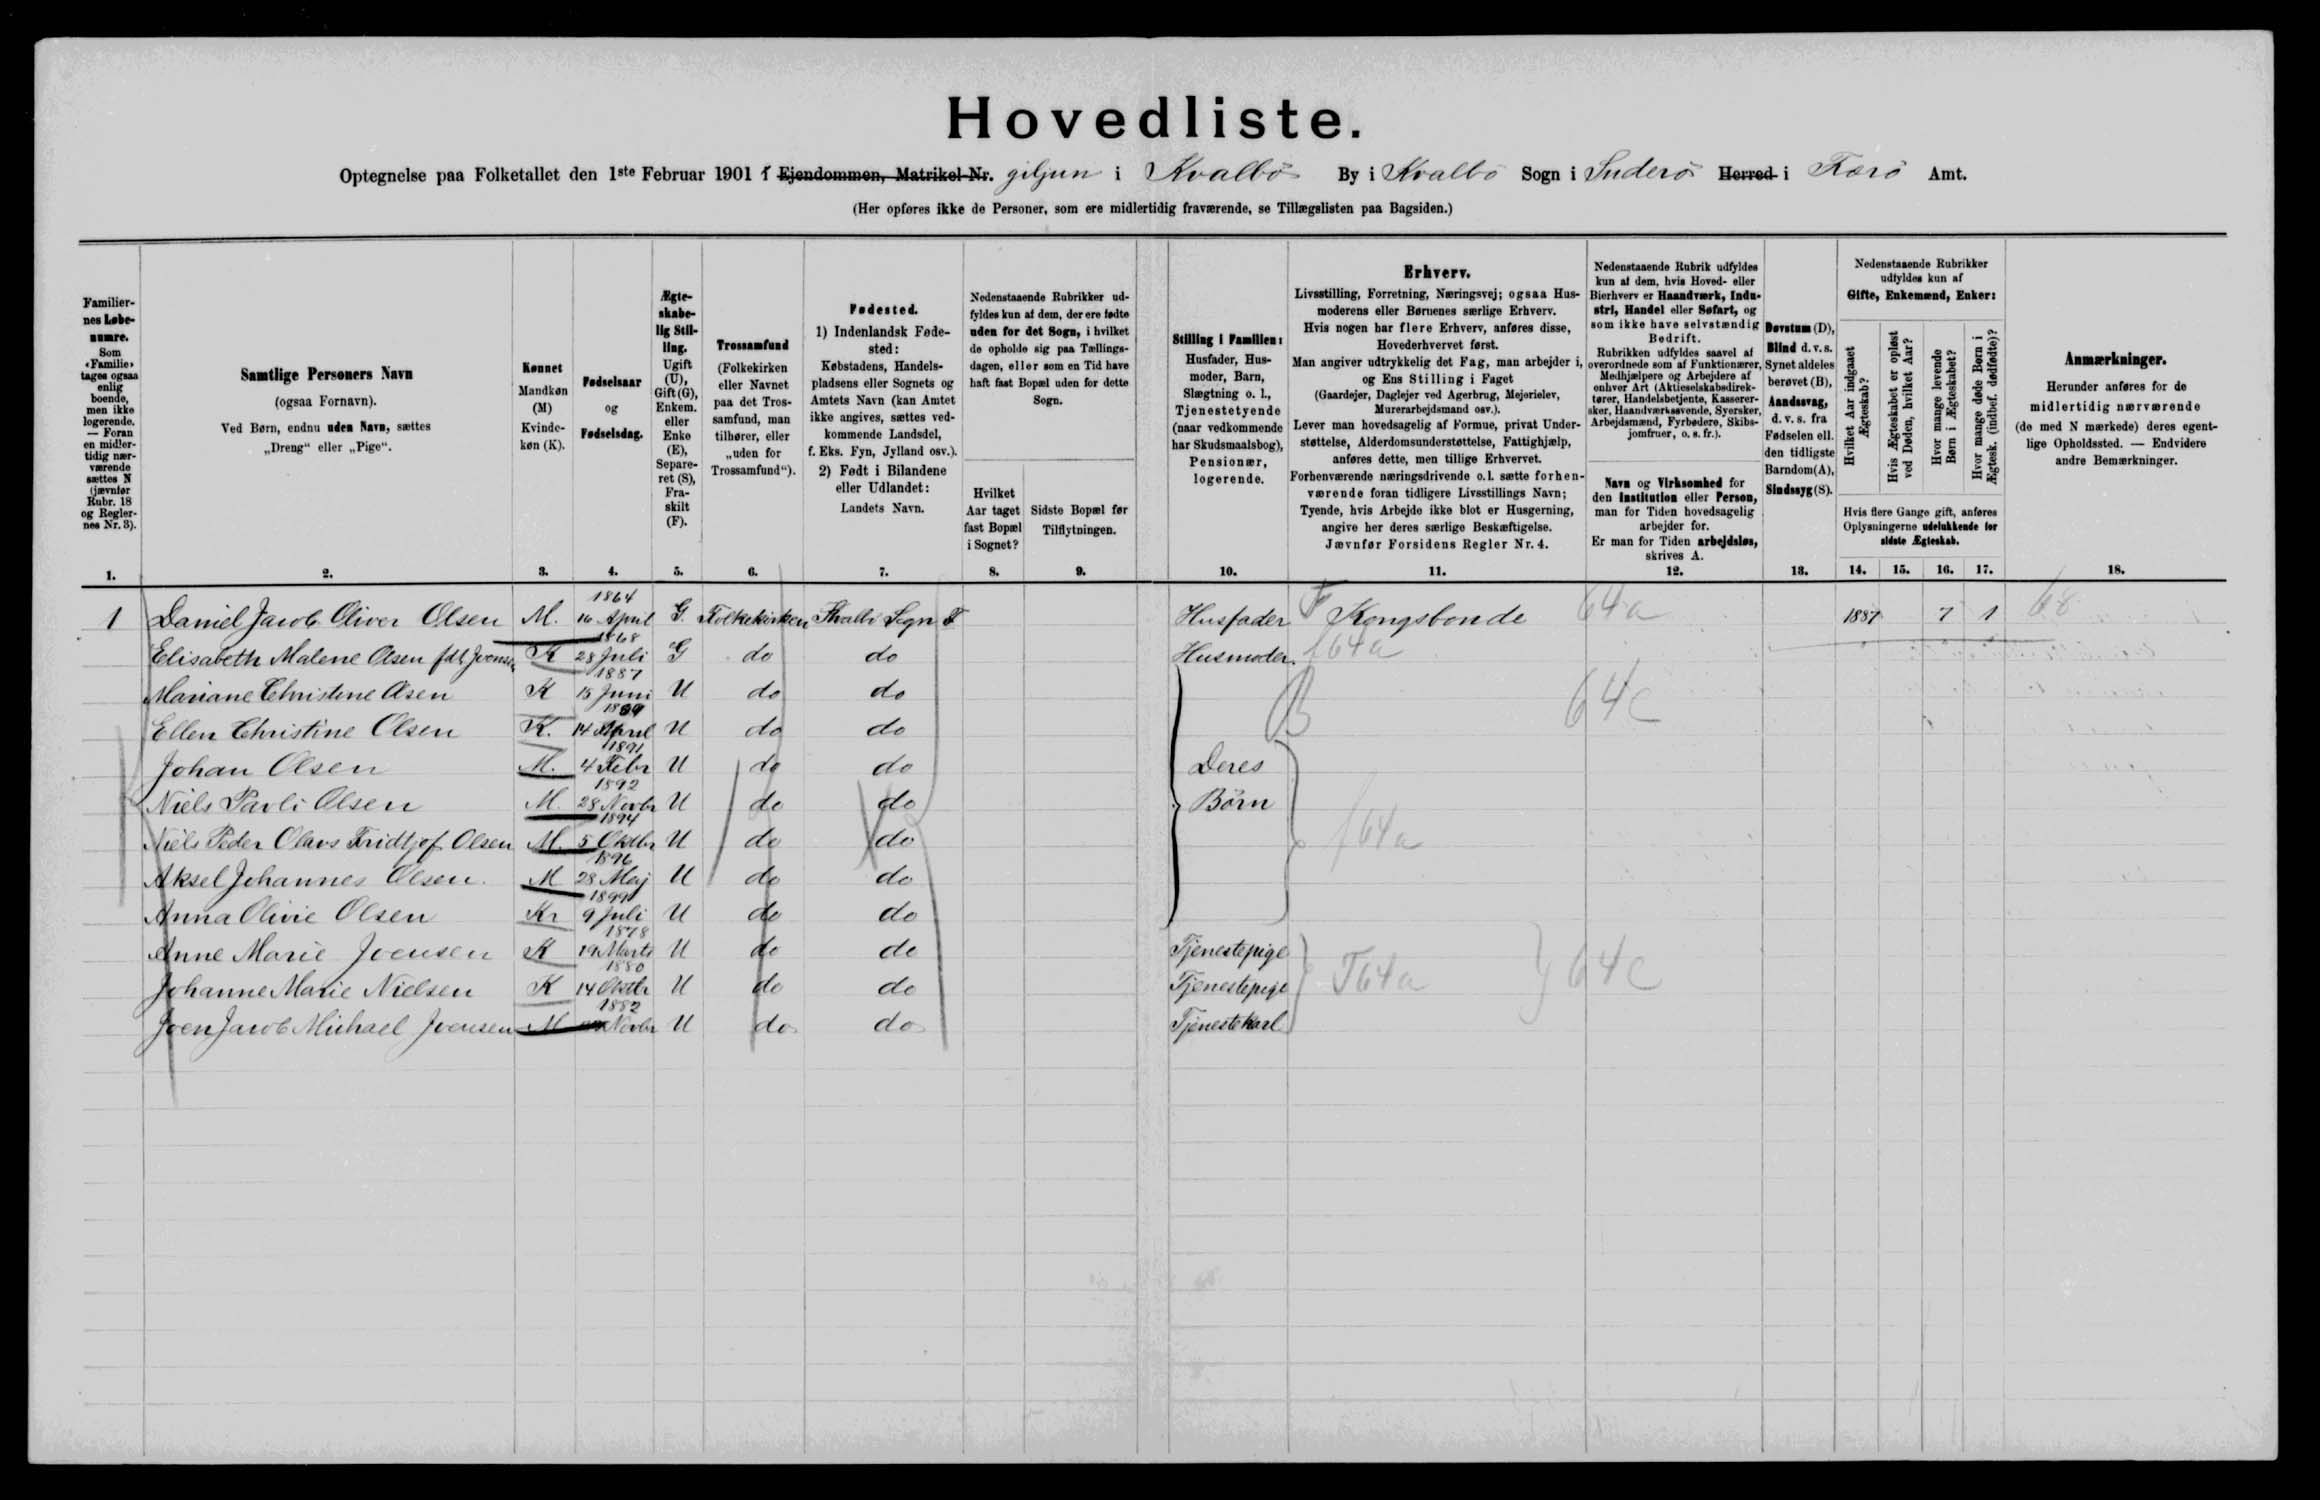 Hovedliste.
Optegnelse paa Folketallet den 1ste Februar 1901 i Ejendommen, Matrikel-Nr. giljun i Kvalbö By i Kvalbö Sogn i Suderö Herred i Færö Amt.
(Her opføres ikke de Personer, som ere midlertidig fraværende, se Tillægslisten paa Bagsiden.)
Familier-
nes Løbe-
numre.
Som
«Familie»
tages ogsaa
enlig
boende,
men ikke
logerende.
— Foran
en midler-
tidig nær-
værende
sættes N
(jævnfør
Rubr. 18
og Regler-
nes Nr. 3).
Samtlige Personers Navn
(ogsaa Fornavn).
Ved Børn, endnu uden Navn, sættes
„Dreng“ eller „Pige“.
Kønnet
Mandkøn
(M)
Kvinde-
køn (K).
Fødselsaar
og
Fødselsdag.
Ægte-
skabe-
lig Stil-
ling.
Ugift
(U),
Gift (G),
Enkem.
eller
Enke
(E),
Separe-
ret (S),
Fra-
skilt
(F).
Trossamfund
(Folkekirken
eller Navnet
paa det Tros-
samfund, man
tilhører, eller
„uden for
Trossamfund“).
Fødested.
1) Indenlandsk Føde-
sted:
Købstadens, Handels-
pladsens eller Sognets og
Amtets Navn (kan Amtet
ikke angives, sættes ved-
kommende Landsdel,
f. Eks. Fyn, Jylland osv.).
2) Født i Bilandene
eller Udlandet:
Landets Navn.
Nedenstaaende Rubrikker ud-
fyldes kun af dem, der ere fødte
uden for det Sogn, i hvilket
de opholde sig paa Tællings-
dagen, eller som en Tid have
haft fast Bopæl uden for dette
Sogn.
Hvilket
Aar taget
fast Bopæl
i Sognet?
Sidste Bopæl før
Tilflytningen.
Stilling i Familien:
Husfader, Hus-
moder, Barn,
Slægtning o. l.,
Tjenestetyende
(naar vedkommende
har Skudsmaalsbog),
Pensionær,
logerende.
Erhverv.
Livsstilling, Forretning, Næringsvej; ogsaa Hus-
moderens eller Børnenes særlige Erhverv.
Hvis nogen har flere Erhverv, anføres disse,
Hovederhvervet først.
Man angiver udtrykkelig det Fag, man arbejder i,
og Ens Stilling i Faget
(Gaardejer, Daglejer ved Agerbrug, Mejerielev,
Murerarbejdsmand osv.).
Lever man hovedsagelig af Formue, privat Under-
støttelse, Alderdomsunderstøttelse, Fattighjælp,
anføres dette, men tillige Erhvervet.
Forhenværende næringsdrivende o.l. sætte forhen-
værende foran tidligere Livsstillings Navn;
Tyende, hvis Arbejde ikke blot er Husgerning,
angive her deres særlige Beskæftigelse.
Jævnfør Forsidens Regler Nr. 4.
Nedenstaaende Rubrik udfyldes
kun af dem, hvis Hoved- eller
Bierhverv er Haandværk, Indu-
stri, Handel eller Søfart, og
som ikke have selvstændig
Bedrift.
Rubrikken udfyldes saavel af
overordnede som af Funktionærer,
Medhjælpere og Arbejdere af
enhver Art (Aktieselskabsdirek-
tører, Handelsbetjente, Kasserer-
sker, Haandværkssvende, Syersker,
Arbejdsmænd, Fyrbødere, Skibs-
jomfruer, o. s. fr.).
Navn og Virksomhed for
den Institution eller Person,
man for Tiden hovedsagelig
arbejder for.
Er man for Tiden arbejdsløs,
skrives A.
Døvstum (D),
Blind d. v. s.
Synet aldeles
berøvet (B),
Aandssvag,
d. v. s. fra
Fødselen ell.
den tidligste
Barndom (A),
Sindssyg (S).
Nedenstaaende Rubrikker
udfyldes kun af
Gifte, Enkemænd, Enker:
Hvilket Aar indgaaet
Ægteskab?
Hvis Ægteskabet er opløst
ved Døden, hvilket Aar?
Hvor mange levende
Børn i Ægteskabet?
Hvor mange døde Børn i
Ægtesk. (indbef. dødfødte)?
Hvis flere Gange gift, anføres
Oplysningerne udelukkende for
sidste Ægteskab.
Anmærkninger.
Herunder anføres for de
midlertidig nærværende
(de med N mærkede) deres egent-
lige Opholdssted. — Endvidere
andre Bemærkninger.
1. 2. 3. 4. 5. 6. 7. 8. 9. 10. 11. 12. 13. 14. 15. 16. 17. 18.
1 Daniel Jacob Oliver Olsen M. 1864 16 April G. Folkekirken Kvalbö Sogn F Husfader F Kongsbonde 64a 1887 7 1 68
Elisabeth Malene Olsen fdt Joensen K 1868 28 Juli G do do Husmoder f64a
Mariane Christine Olsen K 1887 15 Juni U do do B 64c
Ellen Christine Olsen K. 1889 14 April U do do
Johan Olsen M. 1891 4 Febr U do do Deres
Niels Pavli Olsen M 1892 28 Novbr U do do Börn
Niels Peder Olavs Fridtjof Olsen M. 1894 5 Oktbr U do do f64a
Aksel Johannes Olsen M 1896 28 Maj U do do
Anna Olivie Olsen Kr 1899 9 Juli U do do
Anne Marie Joensen K 1878 19 Marts U do do Tjenestepige T64a 64c
Johanne Marie Nielsen K 1880 14 Oktbr U do do Tjenestepige
Joen Jacob Michael Joensen M 1882 Novbr U do do Tjenestekarl